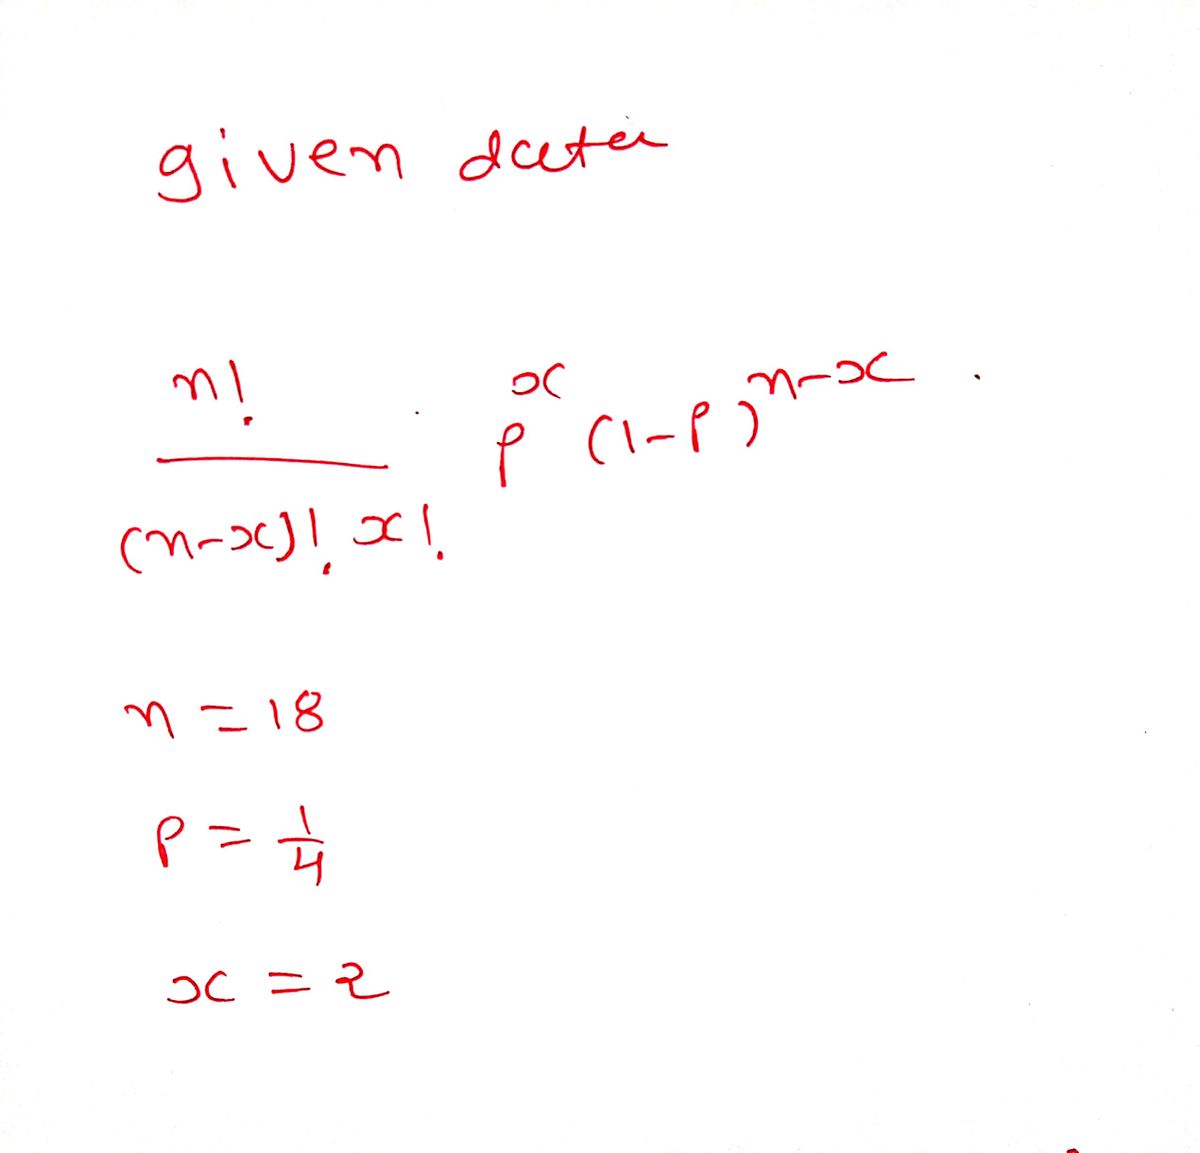 given data
n!
x n-x
p (1-p)
(n-x)! x!
n = 18
p = 1/4
x = 2